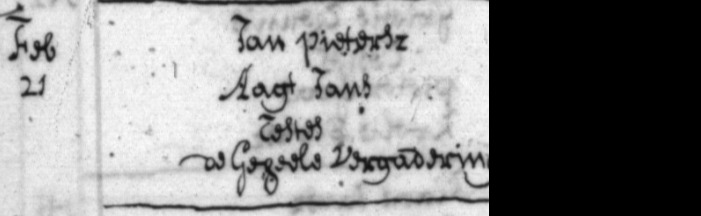 Feb Jan pietersz
21 Aagt Jans
Testes
de Geheele Vergadering